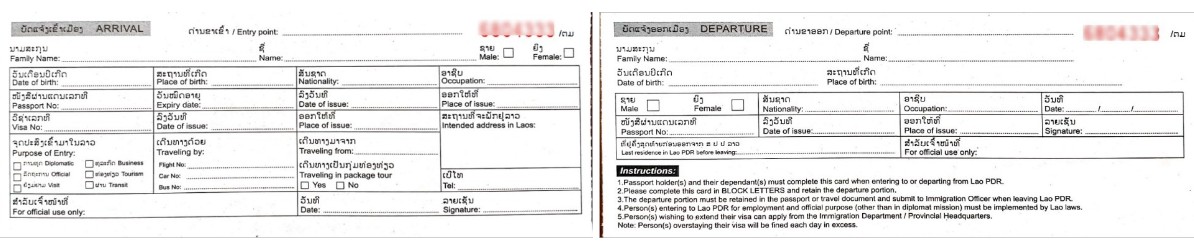 ບັດແຈ້ງເຂົ້າເມືອງ ARRIVAL
ດ່ານຂາເຂົ້າ / Entry point:
/ຕມ
ນາມສະກຸນ ຊື່ ຊາຍ ຍິງ
Family Name: Name: Male: Female:
ວັນເດືອນປີເກີດ ສະຖານທີ່ເກີດ ສັນຊາດ ອາຊີບ
Date of birth: Place of birth: Nationality: Occupation:
ໜັງສືຜ່ານແດນເລກທີ ວັນໝົດອາຍຸ ລົງວັນທີ ອອກໃຫ້ທີ່
Passport No: Expiry date: Date of issue: Place of issue:
ວີຊາເລກທີ ລົງວັນທີ ອອກໃຫ້ທີ່ ສະຖານທີ່ຈະພັກຢູ່ລາວ
Visa No: Date of issue: Place of issue: Intended address in Laos:
ຈຸດປະສົງເຂົ້າມາໃນລາວ ເດີນທາງດ້ວຍ ເດີນທາງມາຈາກ
Purpose of Entry: Traveling by: Traveling from:
ການທູດ Diplomatic ທຸລະກິດ Business Flight No: ເດີນທາງເປັນກຸ່ມທ່ອງທ່ຽວ
Official ທ່ອງທ່ຽວ Tourism Car No: Traveling in package tour ເບີໂທ
ຢ້ຽມຢາມ Visit ຜ່ານ Transit Bus No: Yes No Tel:
ສຳລັບເຈົ້າໜ້າທີ່ ວັນທີ ລາຍເຊັນ
For official use only: Date: Signature:
ບັດແຈ້ງອອກເມືອງ DEPARTURE
ດ່ານຂາອອກ / Departure point:
/ຕມ
ນາມສະກຸນ ຊື່
Family Name: Name:
ວັນເດືອນປີເກີດ ສະຖານທີ່ເກີດ
Date of birth: Place of birth:
ຊາຍ ຍິງ ສັນຊາດ ອາຊີບ ວັນທີ
Male Female Nationality: Occupation: Date: / /
ໜັງສືຜ່ານແດນເລກທີ ລົງວັນທີ ອອກໃຫ້ທີ່ ລາຍເຊັນ
Passport No: Date of issue: Place of issue: Signature:
ທີ່ຢູ່ຄັ້ງສຸດທ້າຍກ່ອນອອກຈາກ ສ ປ ປ ລາວ ສຳລັບເຈົ້າໜ້າທີ່
Last residence in Lao PDR before leaving: For official use only:
Instructions:
1.Passport holder(s) and their dependant(s) must complete this card when entering to or departing from Lao PDR.
2.Please complete this card in BLOCK LETTERS and retain the departure portion.
3.The departure portion must be retained in the passport or travel document and submit to Immigration Officer when leaving Lao PDR.
4.Person(s) entering to Lao PDR for employment and official purpose (other than in diplomat mission) must be implemented by Lao laws.
5.Person(s) wishing to extend their visa can apply from the Immigration Department / Provincial Headquarters.
Note: Person(s) overstaying their visa will be fined each day in excess.